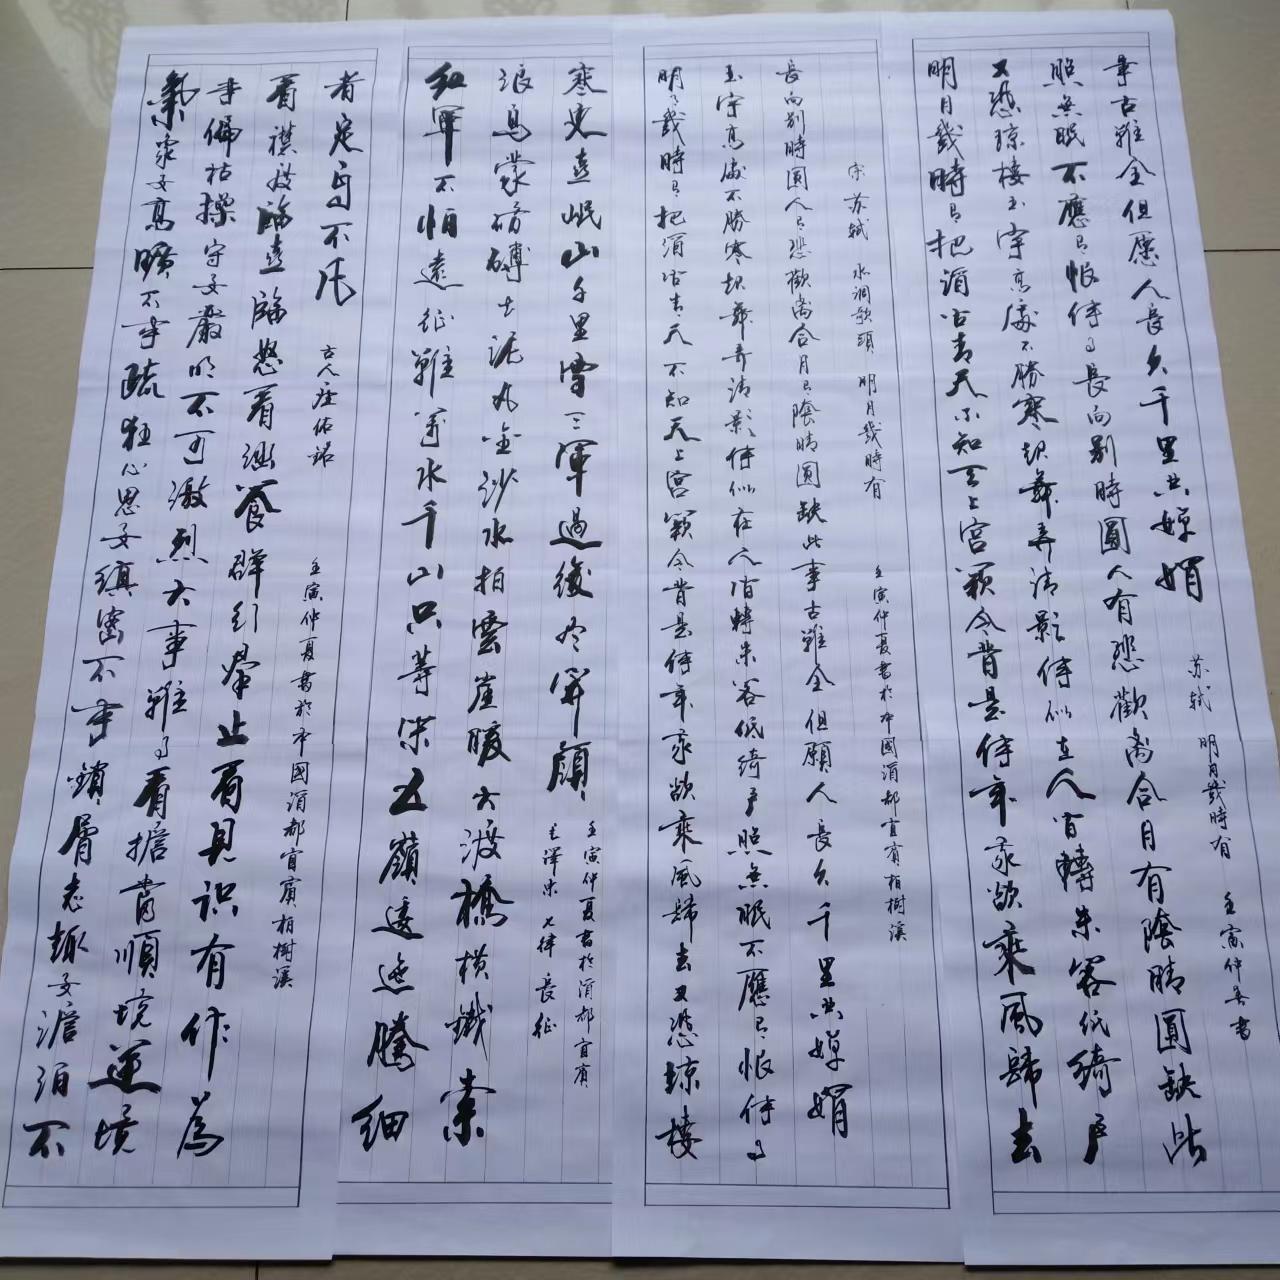 氣象要高曠不可疏狂心思要縝密不可鎖屑志趣要澹泊不
可偏枯操守要嚴明不可激烈大事難事看擔當順境逆境
看襟度臨喜臨怒看涵養群行群止看見識有作為
者定自不凡 古人座佑銘
壬寅仲夏書於中國酒都宜賓柏樹溪
红軍不怕遠征難萬水千山只等閑五嶺逶迤騰細
浪烏蒙磅礴走泥丸金沙水拍雲崖暖大渡橋横鐵索
寒更喜岷山千里雪三軍過後尽開顏
毛澤東 七律 長征
壬寅仲夏書於酒都宜賓
明月幾時有把酒问青天不知天上宫闕今昔是何年我欲乘風歸去又恐琼樓
玉宇高處不勝寒起舞弄清影何似在人间轉朱閣低綺户照無眠不應有恨何事
長向别時圓人有悲歡离合月有陰晴圓缺此事古難全但願人長久千里共嬋娟
宋苏轼 水调歌頭 明月幾時有 壬寅仲夏書於中國酒都宜賓柏樹溪
明月幾時有把酒问青天不知天上宫闕今昔是何年我欲乘風歸去
又恐琼樓玉宇高處不勝寒起舞弄清影何似在人间轉朱閣低綺户
照無眠不應有恨何事長向别時圓人有悲歡离合月有陰晴圓缺此
事古難全但愿人長久千里共嬋娟
苏轼 明月幾時有 壬寅仲夏書